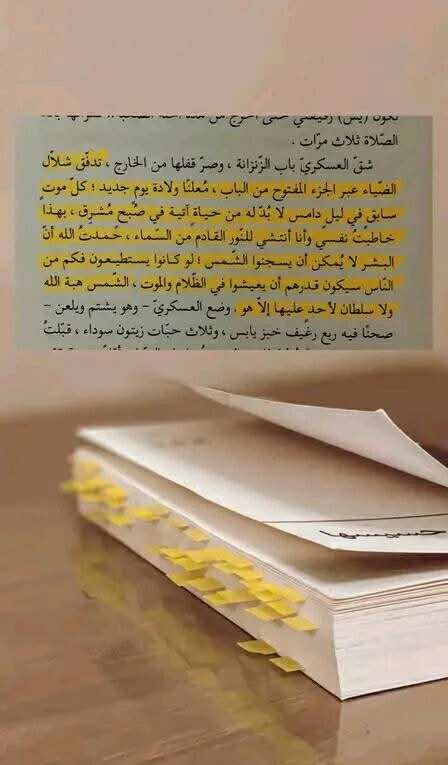 الصّلاة ثلاث مرّات .
شقّ العسكريّ باب الزّنزانة ، وصرّ قفلها من الخارج ، تدفّق شلاّل
الضّياء عبر الجزء المفتوح من الباب ، مُعلنًا ولادة يوم جديد ؛ كل موتٍ
سابق في ليل دامس لا بُدّ له من حياةٍ آتية في صُبح مُشرق ، بهذا
خاطبتُ نفسي وأنا أنتشي للنّور القادم من السّماء ، حَمدتُ الله أنّ
البشر لا يُمكن أن يسجنوا الشّمس ؛ لو كانوا يستطيعون فكم من
النّاس سيكون قدرهم أن يعيشوا في الظّلام والموت ، الشّمس هبة الله
ولا سلطان لأحد عليها إلاّ هو . وضع العسكريّ – وهو يشتم ويلعن –
صحنًا فيه ربع رغيف خبز يابس ، وثلاث حبّات زيتون سوداء ، قبّلتُ
حسيسها